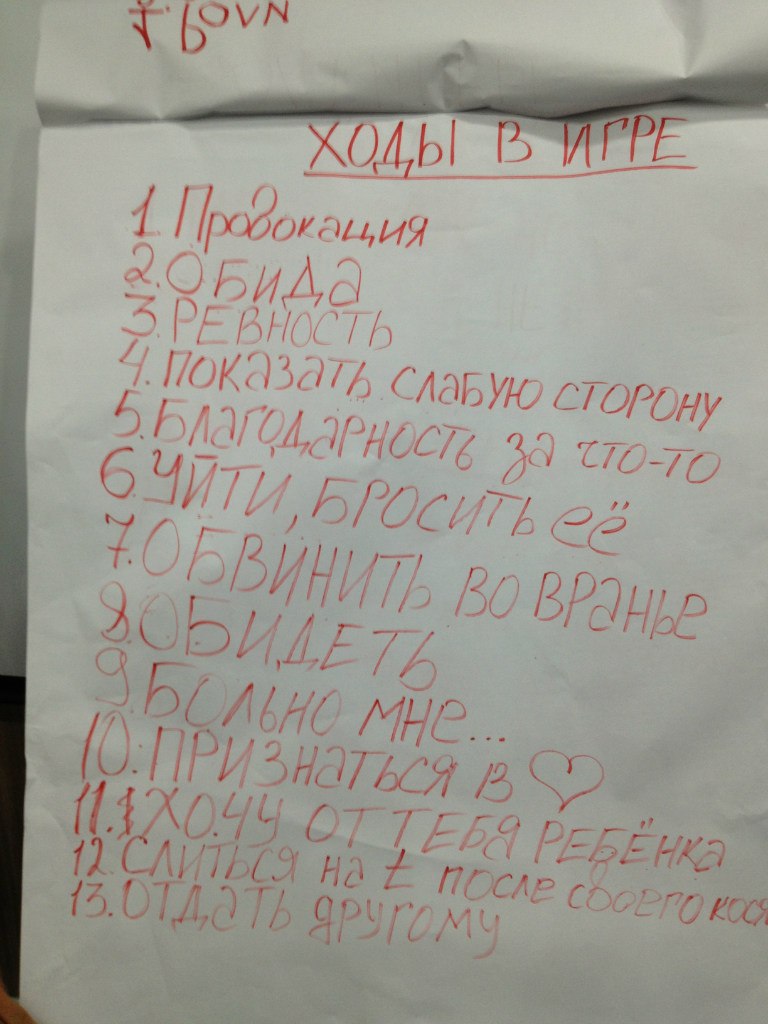 ХОДЫ В ИГРЕ
1. Провокация
2. ОБИДА
3. РЕВНОСТЬ
4. ПОКАЗАТЬ СЛАБУЮ СТОРОНУ
5. БЛАГОДАРНОСТЬ за что-то
6. УЙТИ, БРОСИТЬ её
7. ОБВИНИТЬ ВО ВРАНЬЕ
8. ОБИДЕТЬ
9. БОЛЬНО мне...
10. ПРИЗНАТЬСЯ В ♡
11. ХОЧУ ОТ ТЕБЯ РЕБЁНКА
12. СЛИТЬСЯ на t после своего кося
13. ОТДАТЬ ДРУГОМУ